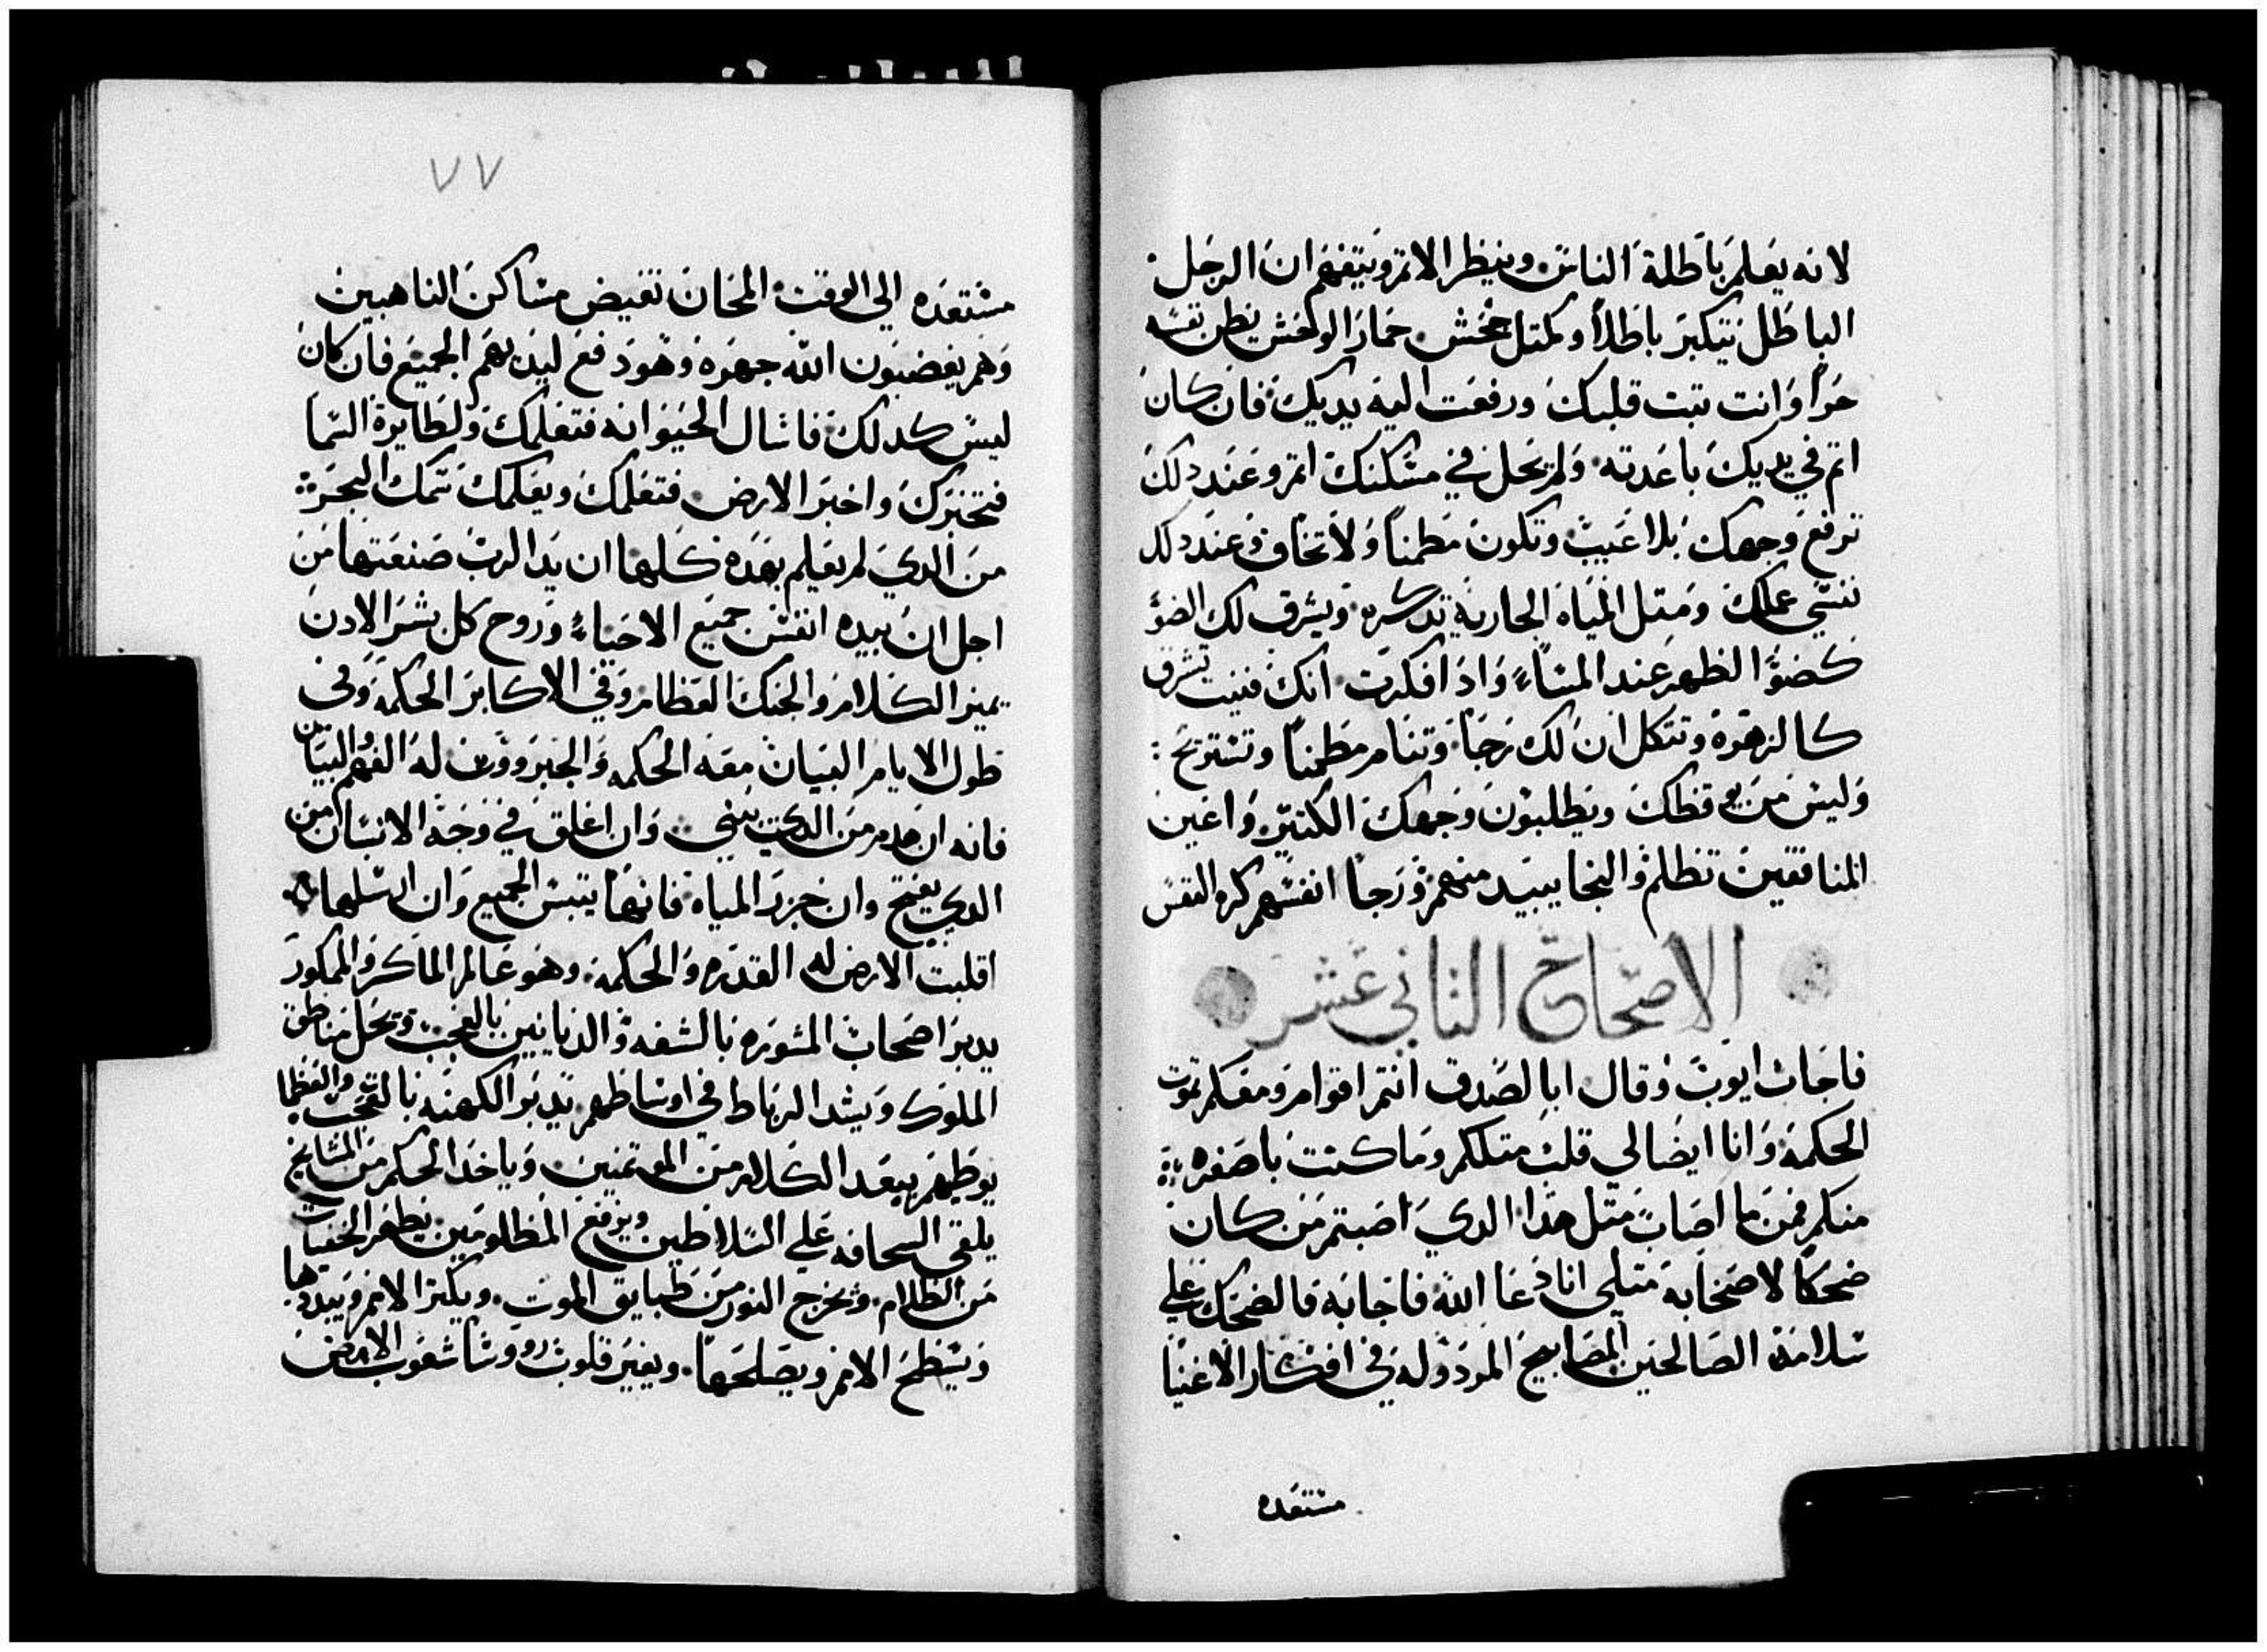 لانه يعلم باطلة الناس وينظر الاثم ويتفهم ان الرجل
الباطل يتكبر باطلاً ولمثل جحش حمار الوحش يظن نفسه
حراً وانت تبت قلبك ورفعت اليه يديك فان كان
اثم في يديك باعدته ولم يحل في مسكنك اثم وعند دلك
ترفع وجهك بلا عيب وتكون مطمناً ولا تخاف وعند دلك
تنسي عملك ومثل المياه الجاريه تدكره ويشرق لك الضوُ
كضوُ الظهر عند المساءِ وادا فكرت انك فنيت تشرق
كالزهرة وتتكل ان لك رجاً وتنام مطمناً وتستريح :
وليس من يوقظك ويطلبون وجهك الكتير واعين
المنافقين تظلم والنجا يبيد منهم ورجاً انفسهم كره النفس
الاصحاح الثاني عشر
فاجاب ايوب وقال ابا لصدق انتم اقوام ومعكم تموت
الحكمه وانا ايضا لي قلب مثلكم وما كنت باصغره
منكم فمن ما اصاب مثل هدا الدي اصبتم من كان
ضحكاً لاصحابه مثلي انا دعا الله فاجابه فالضحك علي
سلامة الصالحين المصابيح المردوله في افكار الاغنيا
مستعده
٧٧
مستعده الي الوقت المحان تفيض مساكن الناهبين
وهم يغضبون الله جهره وهو دفع ليديهم الجميع فان كان
ليس كدلك فاسال الحيوانه فتعلمك ولطايرة السما
فتخبرك واخبر الارض فتعلمك ويعلمك سمك البحر
من الدي لم يعلم بهده كلها ان يد الرب صنعتها من
اجل ان بيده انفس جميع الاحياءِ وروح كل بشر الادن
يميز الكلام والحنك الطعام وفي الاكابر الحكمه وفي
طول الايام البيان معه الحكمه والجبرووت له الفهم والبيان
فانه ان هدم من الدي يبني وان اغلق في وجه الانسان من
الدي يفتح وان خزر المياه فانها يتبس الجميع وان ارسلها
اقلبت الارض له القدره والحكمه وهو عالم الماكر والممكور
يدبر اصحاب المشوره بالسفه والديانين بالعجب ويحل مناطق
الملوك ويشد الرباط في اوساطهم يدبر الكهنه بالتعجب والعظما
يوطيهم يبعد الكلام من الموتمنين وياخد الحكم من المشايخ
يلقي السحافه علي السلاطين ويرفع المظلومين يظهر الخفيات
من الظلام ويخرج النور من ظبايق الموت ويكثر الامم ويبيدها
ويسطح الامم ويصلحها ويغير قلوب رووسا شعوب الارض